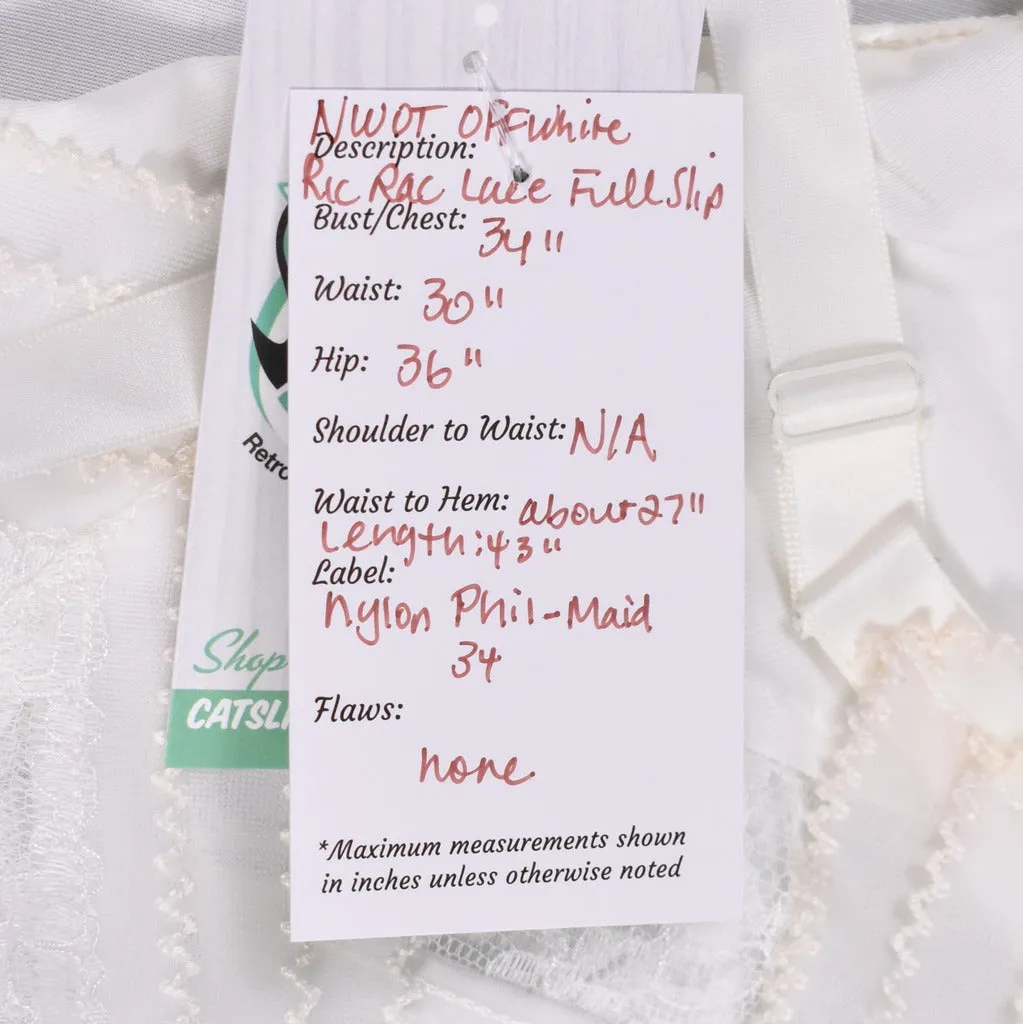 NWOT OFFWhite
Description:
Ric Rac Lace Full Slip
Bust/Chest: 34"
Waist: 30"
Hip: 36"
Shoulder to Waist: N/A
Waist to Hem: about 27"
Length: 43"
Label:
Nylon Phil-Maid
34
Flaws:
none
*Maximum measurements shown
in inches unless otherwise noted
Retro
Shop
CATSL